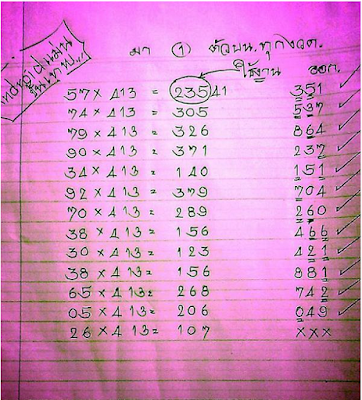 มา ① ตัวบน.ทุกงวด.
ใช้งาน ออก.
57 × 413 = 23541 351 ✓
74 × 413 = 305 537 ✓
79 × 413 = 326 864 ✓
90 × 413 = 371 237 ✓
34 × 413 = 140 151 ✓
92 × 413 = 379 704 ✓
70 × 413 = 289 260 ✓
38 × 413 = 156 466 ✓
30 × 413 = 123 421 ✓
38 × 413 = 156 881 ✓
65 × 413 = 268 742 ✓
05 × 413 = 206 049 ✓
26 × 413 = 107 ×××